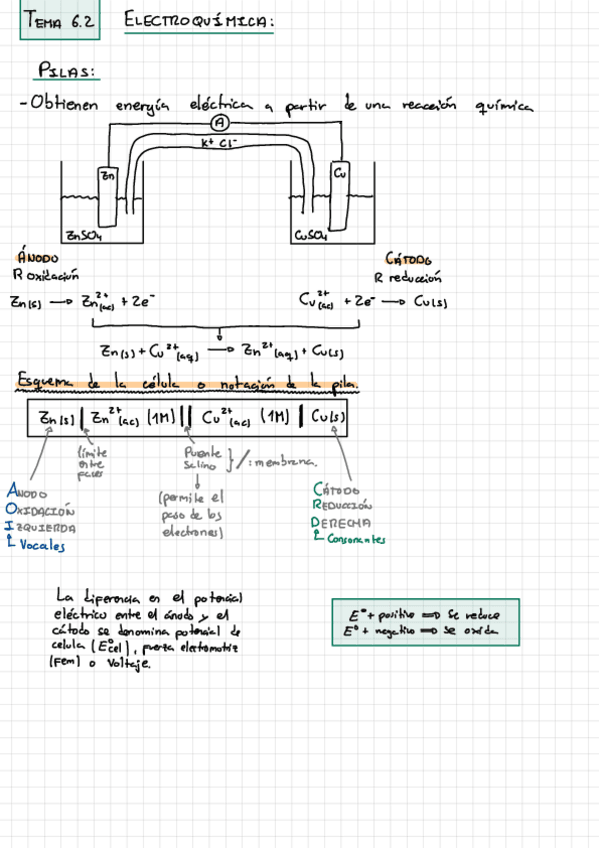 TEMA 6.2 ELECTROQUÍMICA:
PILAS:
- Obtienen energía eléctrica a partir de una reacción química
A
K+ Cl-
Zn
Cu
ZnSO4
CuSO4
ÁNODO
R oxidación
Zn(s) → Zn²⁺(ac) + 2e⁻
CÁTODO
R reducción
Cu²⁺(ac) + 2e⁻ → Cu(s)
Zn(s) + Cu²⁺(aq) → Zn²⁺(aq) + Cu(s)
Esquema de la célula o notación de la pila.
Zn(s) | Zn²⁺(ac) (1M) || Cu²⁺(ac) (1M) | Cu(s)
límite
entre
fases
Puente
Salino } / : membrana.
(permite el
paso de los
electrones)
ANODO
OXIDACIÓN
IZQUIERDA
↳ Vocales
CÁTODO
REDUCCIÓN
DERECHA
↳ Consonantes
La diferencia en el potencial
eléctrico entre el ánodo y el
cátodo se denomina potencial de
celula (E°cel), fuerza electromotriz
(Fem) o Voltaje.
E° + positivo ⇒ Se reduce
E° + negativo ⇒ Se oxida